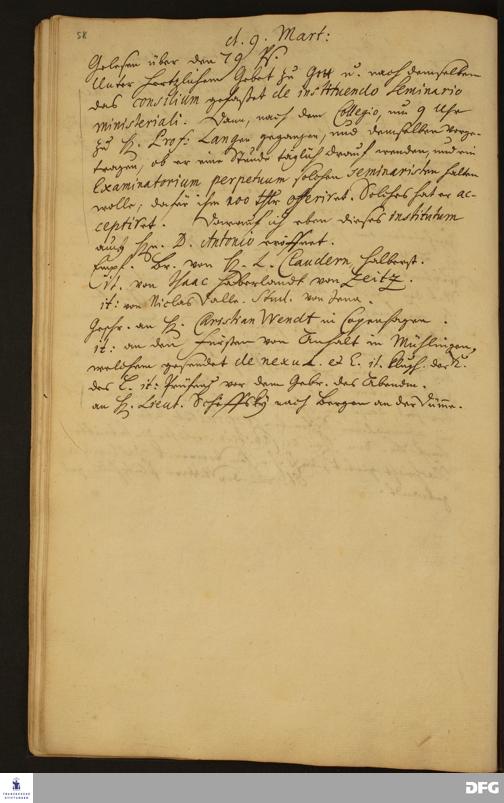 58
d. 9. Mart:
Gelesen über den 79 Ps.
Unter hertzlichem Gebet zu Gott u. nach demselben
das consilium gefasset de instituendo Seminario
ministeriali. Dann, nach dem Collegio, um 9 Uhr
zu H. Prof. Langen gegangen, und demselben vorge-
tragen, ob er eine Stunde täglich drauf wenden, und ein
Examinatorium perpetuum solchen Seminaristen halten
wolle; dafür ihm 100 Thlr offeriret. Solches hat er ac-
ceptiret. Darauf ich eben dieses institutum
auch Hrn. D. Antonio eröffnet.
Empf. Br. von H. L. Claudern, Halberst.
it. von Isaac Haberlandt von Zeitz.
it: von Niclas Dalle. Stud. von Jena.
Geschr. an H. Christian Wendt in Copenhagen.
it. an den Fürsten von Anhalt in Mühlingen,
welchem gesendet de nexu L. et E. it. der
des it: vor dem Gebr. des Abendm.
an H. Lieut. Schiffsky nach Bergen an der Dumme.
FRANCKESCHE
STIFTUNGEN
DFG